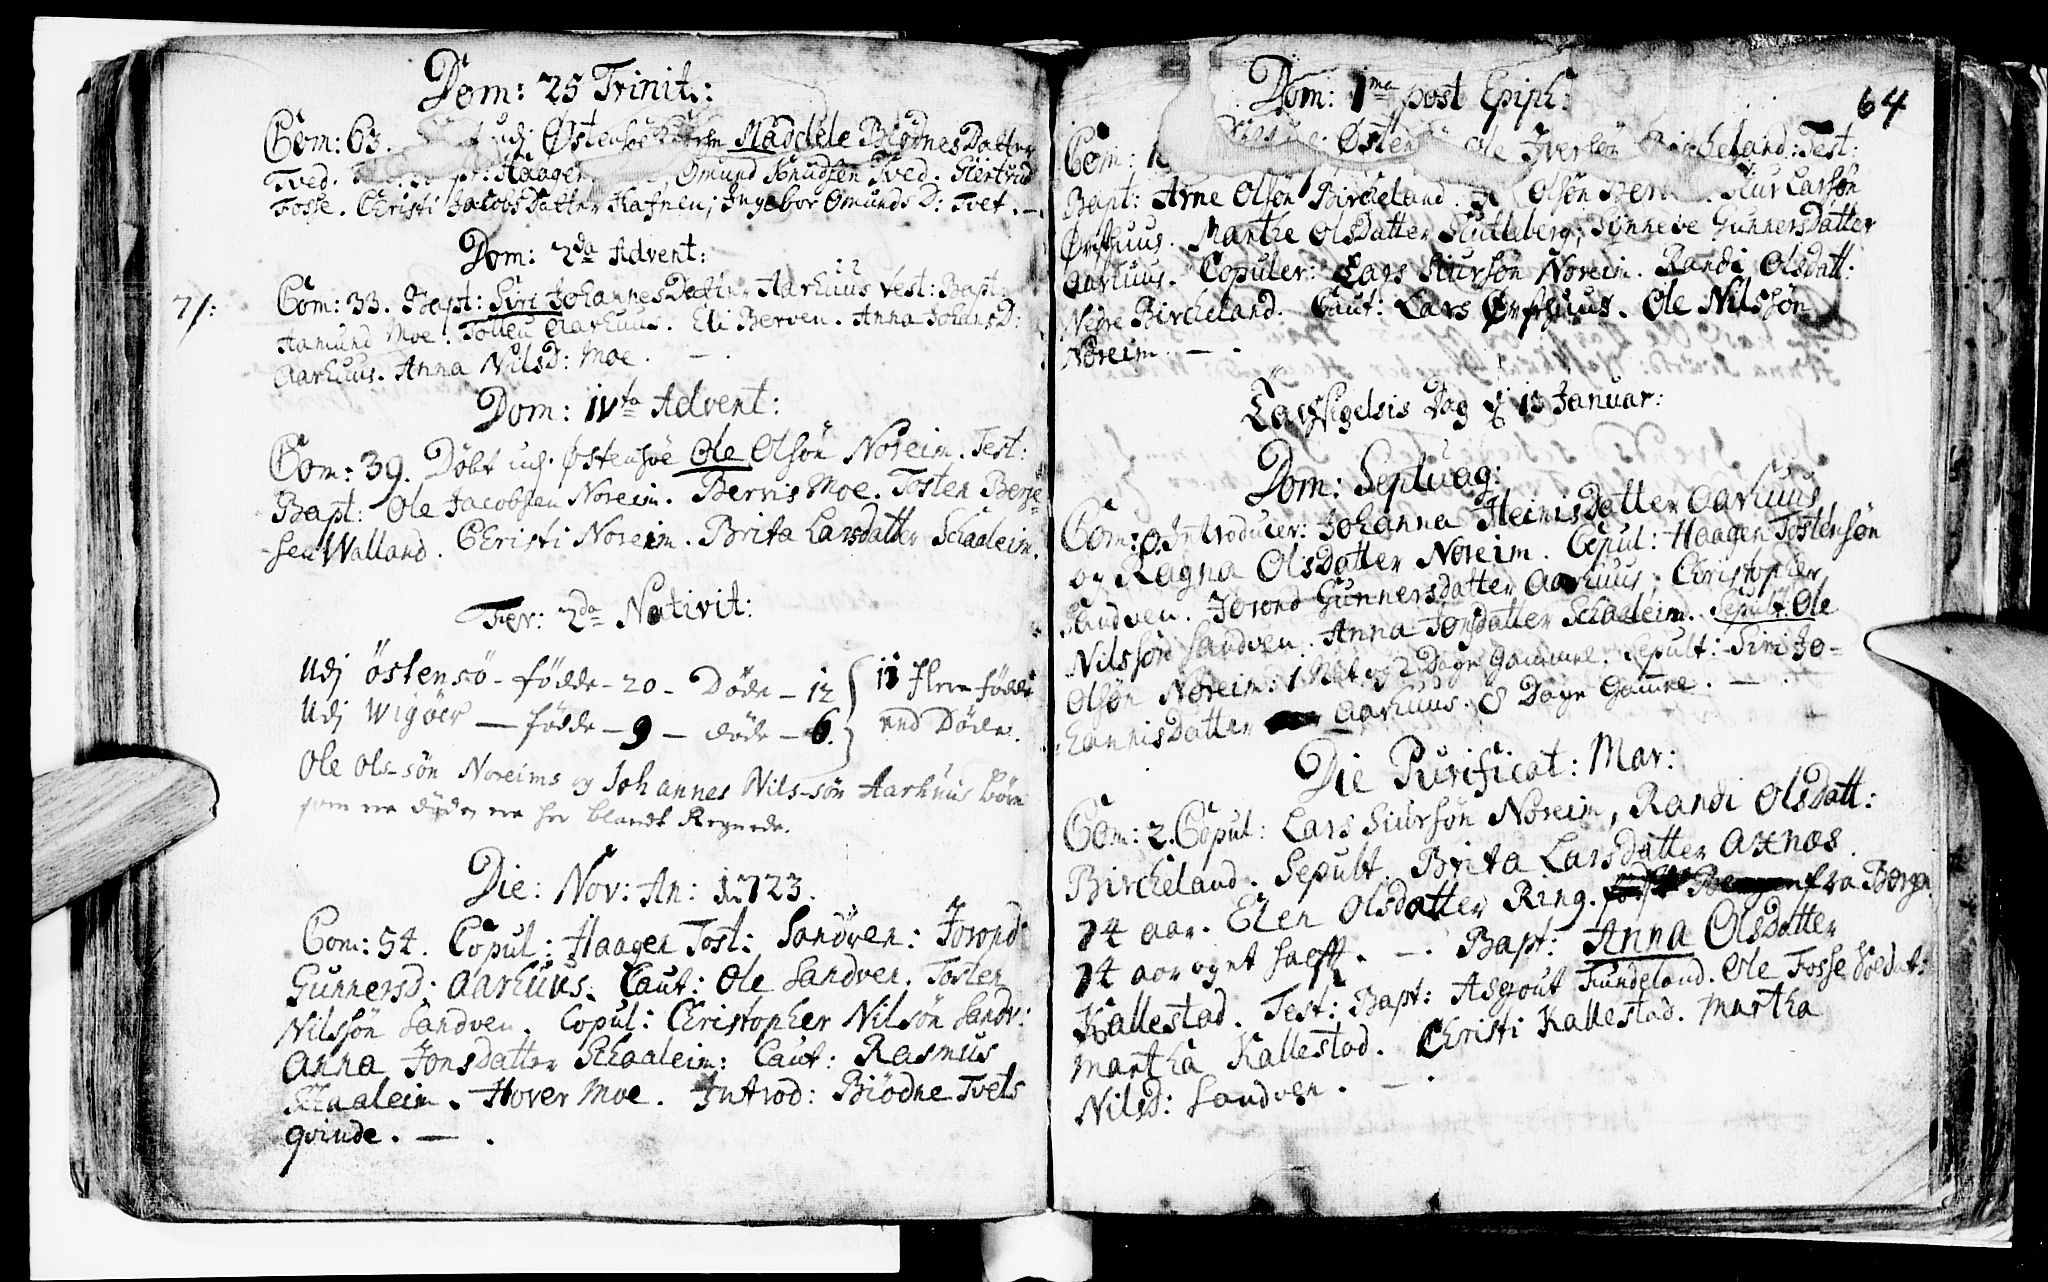 Dom: 25 Trinit.:
Com: 63. udj Østensöe Maddele Biödnes Datter
Tved. Haagen Omund Knudsen Tved. Giertrud
Fosse. Christi Jacobs Datter Kafnen; Ingebor Omunds D: Tvet. —
Dom: 2da Advent:
7/:
Com: 33. Bapt: Siri Johannes Datter Aarhuus test: Bapt:
Aamund Moe. Tolleu Aarhuus. Eli Berven. Anna Johans D:
Aarhuus. Anna Nilsd: Moe. — .
Dom: IVta Advent:
Com: 39. Döbt udj. Østensöe Ole Olsön Noreim. Test:
Bapt: Ole Jacobsen Noreim. Berris Moe. Tosten Berje=
=sen Walland. Christi Noreim. Brita Larsdatter Schaaleim.
Fer: 2da Nativit:
Udj östensö - födde - 20 - Döde - 12 } 11 flere födde
Udj Wigöer — födde - 9 — döde - 6. end Döde.
Ole Ols-sön Noreims og Johannes Nils-sön Aarhuus börn
som ere döde, ere her blandt Regnede.
Die: Nov: An: 1723.
Com: 54. Copul: Haagen Tost: Sandven: Jorond
Gunnersd: Aarhuus. Caut: Ole Sandven. Tosten
Nilssön Sandven. Copul: Christopher Nilsön Sandv:
Anna Jonsdatter Schaaleim: Caut: Rasmus
Schaaleim. Hover Moe. Introd: Biödne Tvets
qvinde. — .
64
Dom: 1ma post Epiph:
Com: Østen Ole Iversön Bircheland: Test:
Bapt: Arne Olsön Bircheland. Olsön Siur Larsön
Ørhuus. Marthe Olsdatter Skutleberg; Synneve Gunnersdatter
Aarhuus. Copuler: Lars Siursön Noreim. Randi Olsdatt:
Nedre Bircheland. Caut: Lars Ørhuus. Ole Nilssön
Noreim. — .
Dag d 13 Januar:
Dom: Septuag:
Com: 0. Introducer: Johanna HeinisDatter Aarhuus
og Ragna Olsdatter Noreim. Copul: Haagen Tostensön
Sandven. Jorond Gunnersdatter Aarhuus; Christopher
Nilssön Sandven. Anna Jonsdatter Schaaleim. Sepult: Ole
Olsön Noreim: 1 Nat og 2 Dage Gammel. Sepult: Siri Jo=
hannisdatter Aarhuus. 8 Dage Gamle. — .
Die Purificat: Mar:
Com: 2. Copul: Lars Siursön Noreim, Randi Olsdatt:
Bircheland. Sepult. Brita Larsdatter Axnæs.
74 aar. Elen Olsdatter Ring. fra Bergen
74 aar og et halft. — . Bapt: Anna Olsdatter
Kallestad. Test: Bapt: Asgout Fundeland. Ole Fosse Soldat:
Martha Kallestad. Christi Kallestad. Martha
Nilsd: Sandven. — .